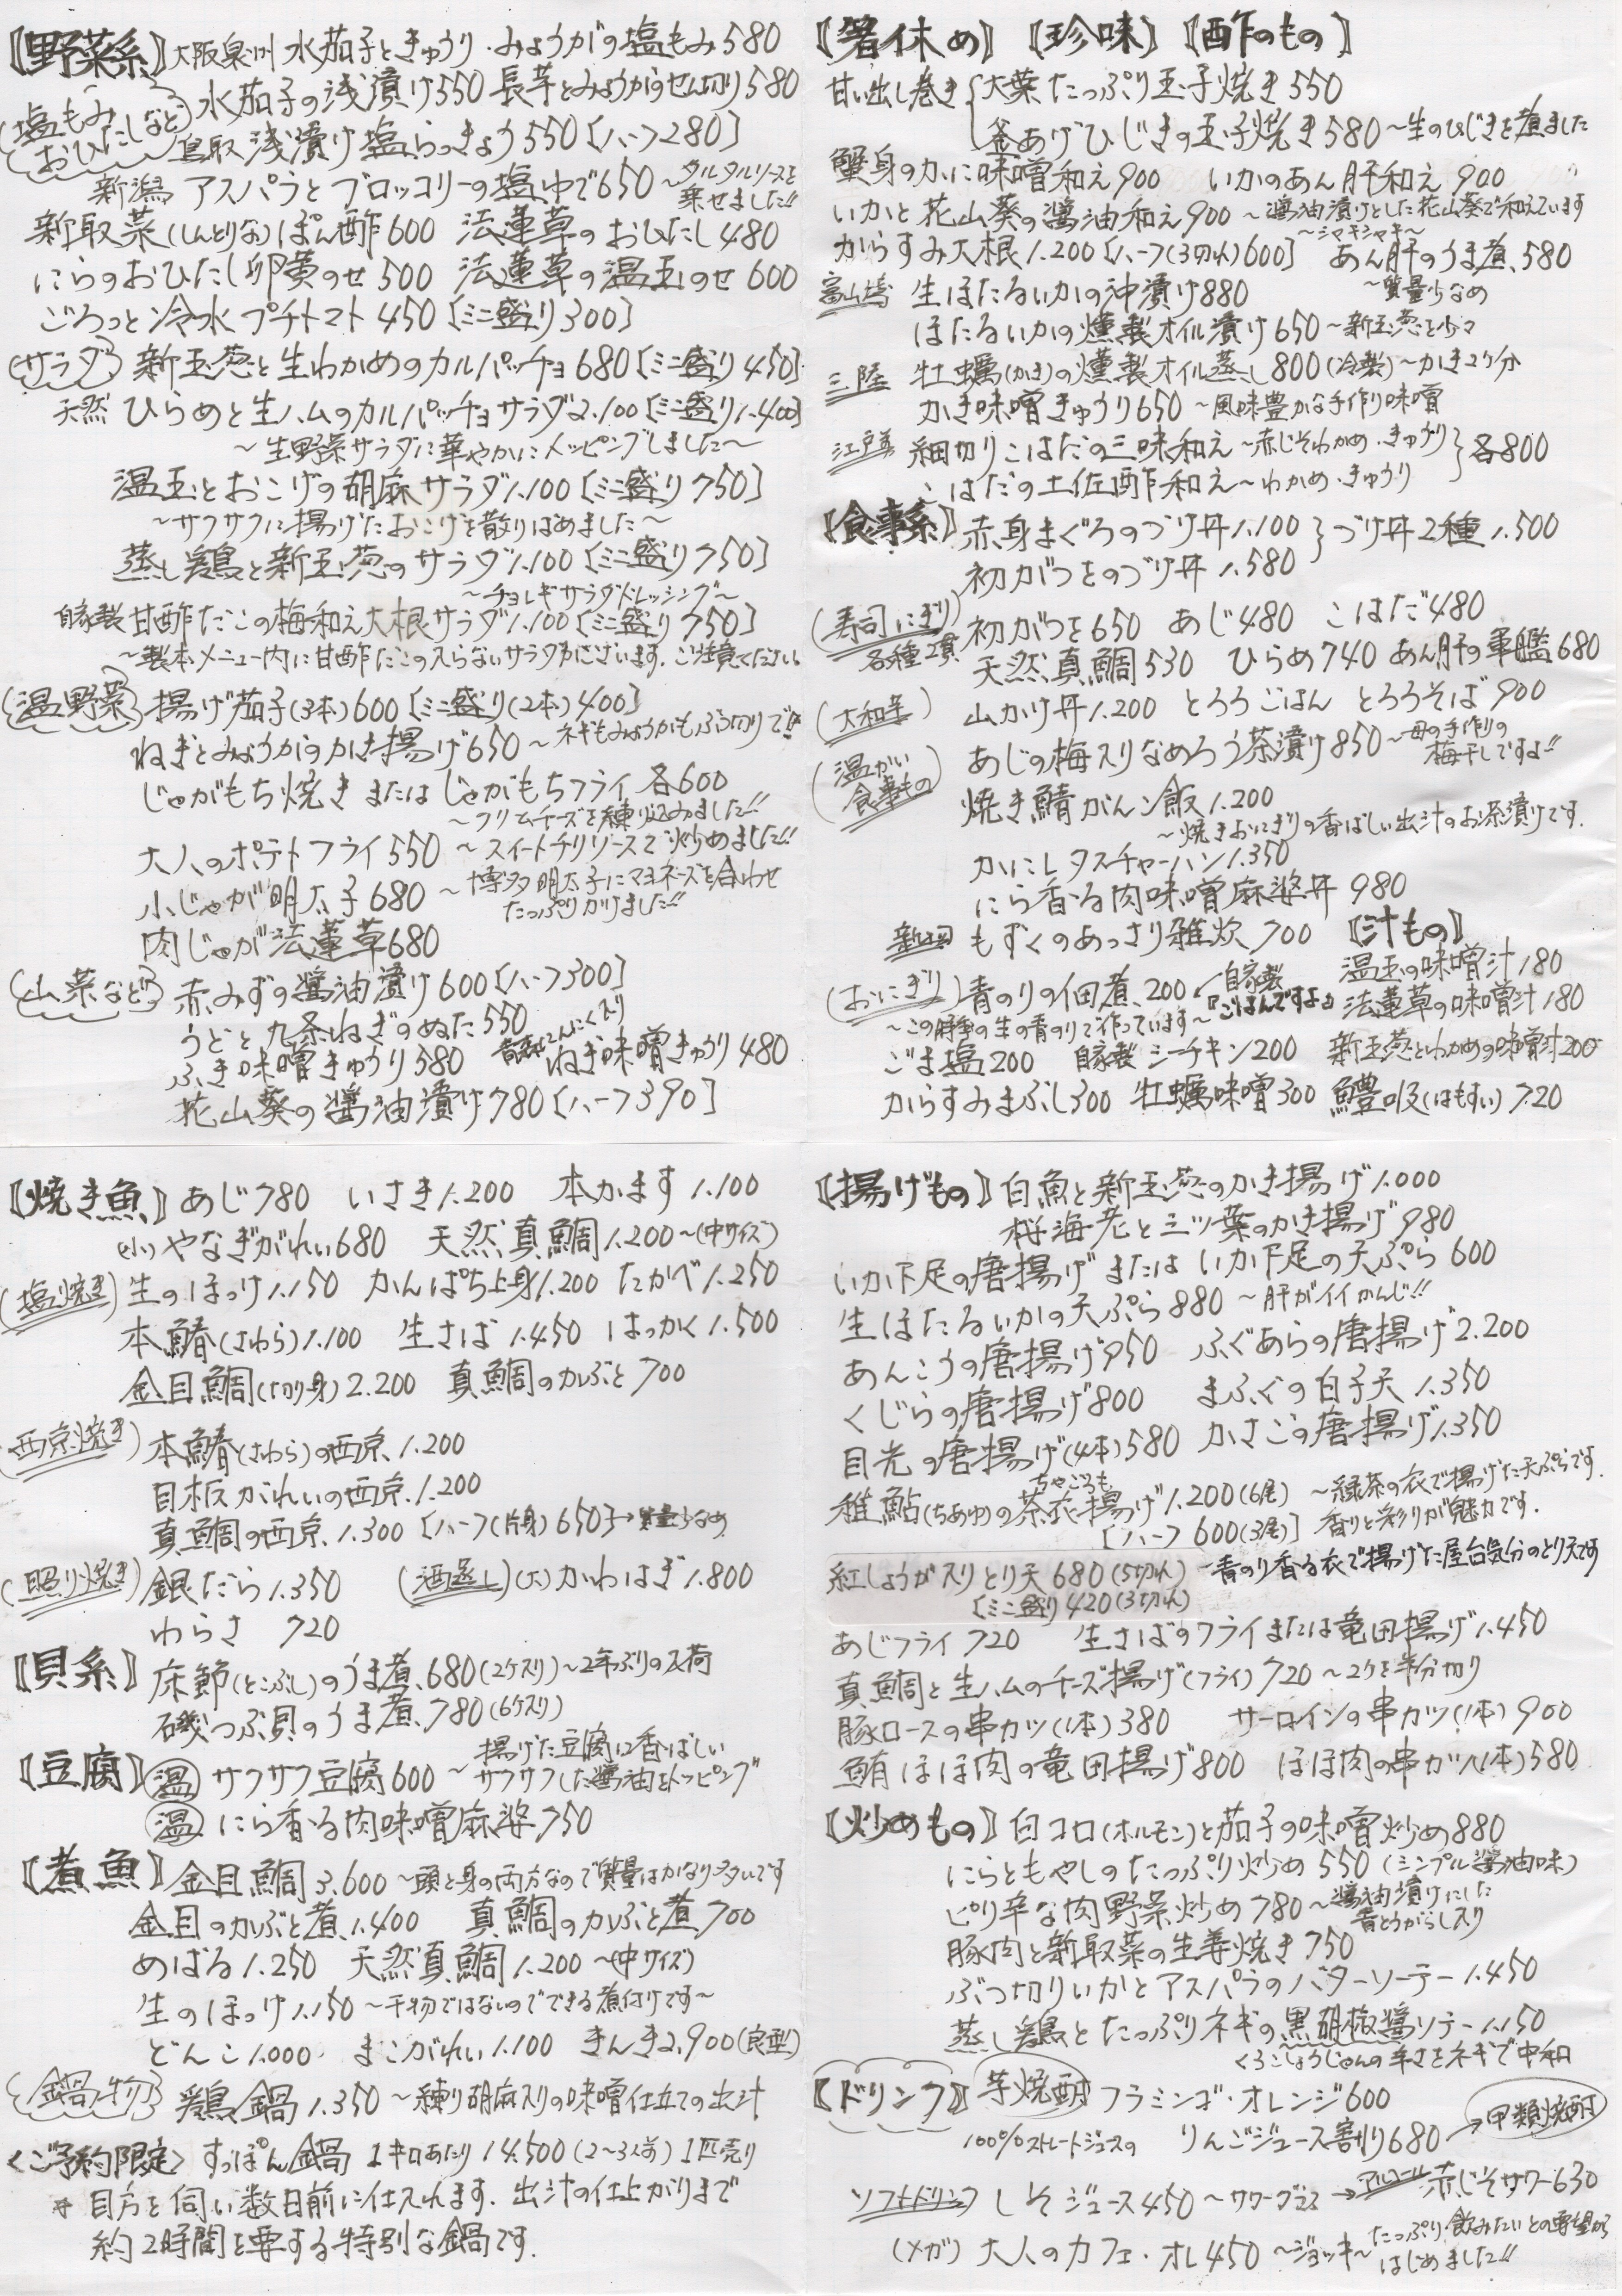 【野菜系】大阪泉州 水茄子ときゅうり・みょうがの塩もみ580
(塩もみ おひたしなど) 水茄子の浅漬け550 長芋とみょうがのせん切り580
鳥取 浅漬け塩らっきょう550【ハーフ280】
新潟 アスパラとブロッコリーの塩ゆで650 ~タルタルソースを乗せました!!
新取菜(しんとりな)ぽん酢600 法蓮草のおひたし480
にらのおひたし卵黄のせ500 法蓮草の温玉のせ600
ごろっと冷水プチトマト450【ミニ盛り300】
(サラダ) 新玉葱と生わかめのカルパッチョ680【ミニ盛り450】
天然 ひらめと生ハムのカルパッチョサラダ2.100【ミニ盛り1.400】
~生野菜サラダに華やかにトッピングしました~
温玉とおこげの胡麻サラダ1.100【ミニ盛り750】
~サクサクに揚げたおこげを散りばめました~
蒸し鶏と新玉葱のサラダ1.100【ミニ盛り750】
~チョレギサラダドレッシング~
自家製 甘酢だこの梅和え大根サラダ1.100【ミニ盛り750】
~製本メニュー内に甘酢だこの入らないサラダがございます。ご注意ください
(温野菜) 揚げ茄子(3本)600【ミニ盛り(2本)400】
ねぎとみょうがのかき揚げ650 ~ネギもみょうがもぶつ切りで!!
じゃがもち焼き または じゃがもちフライ 各600
~クリームチーズを練り込みました!!
大人のポテトフライ550 ~スイートチリソースで炒めました!!
小じゃが明太子680 ~博多明太子にマヨネーズを合わせ
たっぷりかけました!!
肉じゃが法蓮草680
(山菜など) 赤みずの醤油漬け600【ハーフ300】
うどと九条ねぎのぬた550
ふき味噌きゅうり580 青森にんにく入り ねぎ味噌きゅうり480
花山葵の醤油漬け780【ハーフ390】
【箸休め】【珍味】【酢のもの】
甘い出し巻き 大葉たっぷり玉子焼き550
釜あげひじきの玉子焼き580 ~生のひじきを煮ました
蟹身のかに味噌和え900 いかのあん肝和え900
いかと花山葵の醤油和え900 ~醤油漬けとした花山葵で和えています
~シャキシャキ~
からすみ大根1.200【ハーフ(3切れ)600】 あん肝のうま煮580
~質量少なめ
富山湾 生ほたるいかの沖漬け880
ほたるいかの燻製オイル漬け650 ~新玉葱を少々
三陸 牡蠣(かき)の燻製オイル蒸し800(冷製)~かき2ケ分
かき味噌きゅうり650 ~風味豊かな手作り味噌
江戸前 細切りこはだの三味和え~赤じそわかめ・きゅうり
こはだの土佐酢和え~わかめ・きゅうり 各800
【食事系】赤身まぐろのづけ丼1.100 づけ丼2種1.500
初がつをのづけ丼1.580
(寿司にぎり) 各種2貫 初がつを650 あじ480 こはだ480
天然真鯛530 ひらめ740 あん肝の軍艦680
(大和芋) 山かけ丼1.200 とろろごはん とろろそば900
あじの梅入りなめろう茶漬け850 ~母の手作りの
梅干しですよ!!
(温かい食事もの) 焼き鯖がんこ飯1.200
~焼きおにぎりの香ばしい出汁のお茶漬けです。
かにレタスチャーハン1.350
にら香る肉味噌麻婆丼980
もずくのあっさり雑炊700 【汁もの】
温玉の味噌汁180
(おにぎり) 青のりの佃煮200 ←自家製『ごはんですよ』 法蓮草の味噌汁180
~この時季の生の青のりで作っています~
ごま塩200 自家製 シーチキン200 新玉葱とわかめの味噌汁200
からすみまぶし300 牡蠣味噌300 鱧吸(はもすい)720
【焼き魚】あじ780 いさき1.200 本かます1.100
(小)やなぎがれい680 天然真鯛1.200~(中サイズ)
(塩焼き) 生のほっけ1.150 かんぱち上身1.200 たかべ1.250
本鰆(さわら)1.100 生さば1.450 はっかく1.500
金目鯛(切り身)2.200 真鯛のかぶと700
(西京焼き) 本鰆(さわら)の西京1.200
目板がれいの西京1.200
真鯛の西京1.300【ハーフ(片身)650】→質量少なめ
(照り焼き) 銀だら1.350 (酒蒸し)(大)かわはぎ1.800
わらさ 720
【貝系】床節(とこぶし)のうま煮680(2ケ入り)~2年ぶりの入荷
磯つぶ貝のうま煮780(6ケ入り)
【豆腐】温 サクサク豆腐600 ~揚げた豆腐に香ばしい
サクサクした醤油をトッピング
温 にら香る肉味噌麻婆750
【煮魚】金目鯛3.600~頭と身の両方なので質量はかなり多いです
金目のかぶと煮1.400 真鯛のかぶと煮700
めばる1.250 天然真鯛1.200~(中サイズ)
生のほっけ1.150~干物ではないのでできる煮付けです~
どんこ1.000 まこがれい1.100 きんき2.900(良型)
(鍋物) 鶏鍋1.350~練り胡麻入りの味噌仕立ての出汁
<ご予約限定> すっぽん鍋 1キロあたり14.500(2~3人前)1匹売り
* 目方を伺い数日前に仕入れます。出汁の仕上がりまで
約2時間を要する特別な鍋です。
【揚げもの】白魚と新玉葱のかき揚げ1.000
桜海老と三ツ葉のかき揚げ980
いか下足の唐揚げ または いか下足の天ぷら600
生ほたるいかの天ぷら880 ~肝がイイかんじ!!
あんこうの唐揚げ950 ふぐあらの唐揚げ2.200
くじらの唐揚げ800 まふぐの白子天1.350
目光の唐揚げ(4本)580 かさごの唐揚げ1.350
稚鮎(ちあゆ)の茶衣(ちゃごろも)揚げ1.200(6尾) ~緑茶の衣で揚げた天ぷらです。
【ハーフ600(3尾)】 香りと彩りが魅力です。
紅しょうが入りとり天680(5切れ) ~青のり香る衣で揚げた屋台気分のとり天です
【ミニ盛り420(3切れ)
あじフライ720 生さばのフライまたは竜田揚げ1.450
真鯛と生ハムのチーズ揚げ(フライ)720~2ケを半分切り
豚ロースの串カツ(1本)380 サーロインの串カツ(1本)900
鮪ほほ肉の竜田揚げ800 ほほ肉の串カツ(1本)580
【炒めもの】白コロ(ホルモン)と茄子の味噌炒め880
にらともやしのたっぷり炒め550(シンプル醤油味)
ピリ辛な肉野菜炒め780~醤油漬けにした
青とうがらし入り
豚肉と新取菜の生姜焼き750
ぶつ切りいかとアスパラのバターソーテー1.450
蒸し鶏とたっぷりネギの黒胡椒醤ソテー1.150
くろこしょうじゃんの辛さをネギで中和
【ドリンク】芋焼酎 フラミンゴ・オレンジ600
100%ストレートジュースの りんごジュース割り680→甲類焼酎
ソフトドリンク しそジュース450~サワーグラス→アルコール 赤じそサワー630
(メガ) 大人のカフェ・オレ450~ジョッキ~たっぷり飲みたいとの要望から
はじめました!!